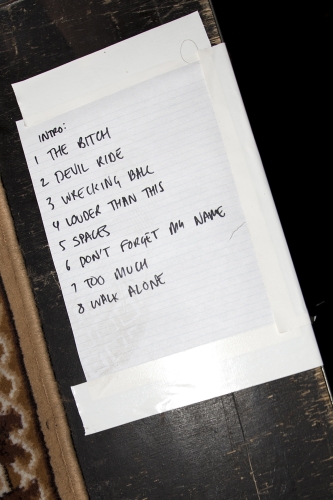 INTRO:
1 THE BITCH
2 DEVIL RIDE
3 WRECKING BALL
4 LOUDER THAN THIS
5 SPACES
6 DON'T FORGET MY NAME
7 TOO MUCH
8 WALK ALONE